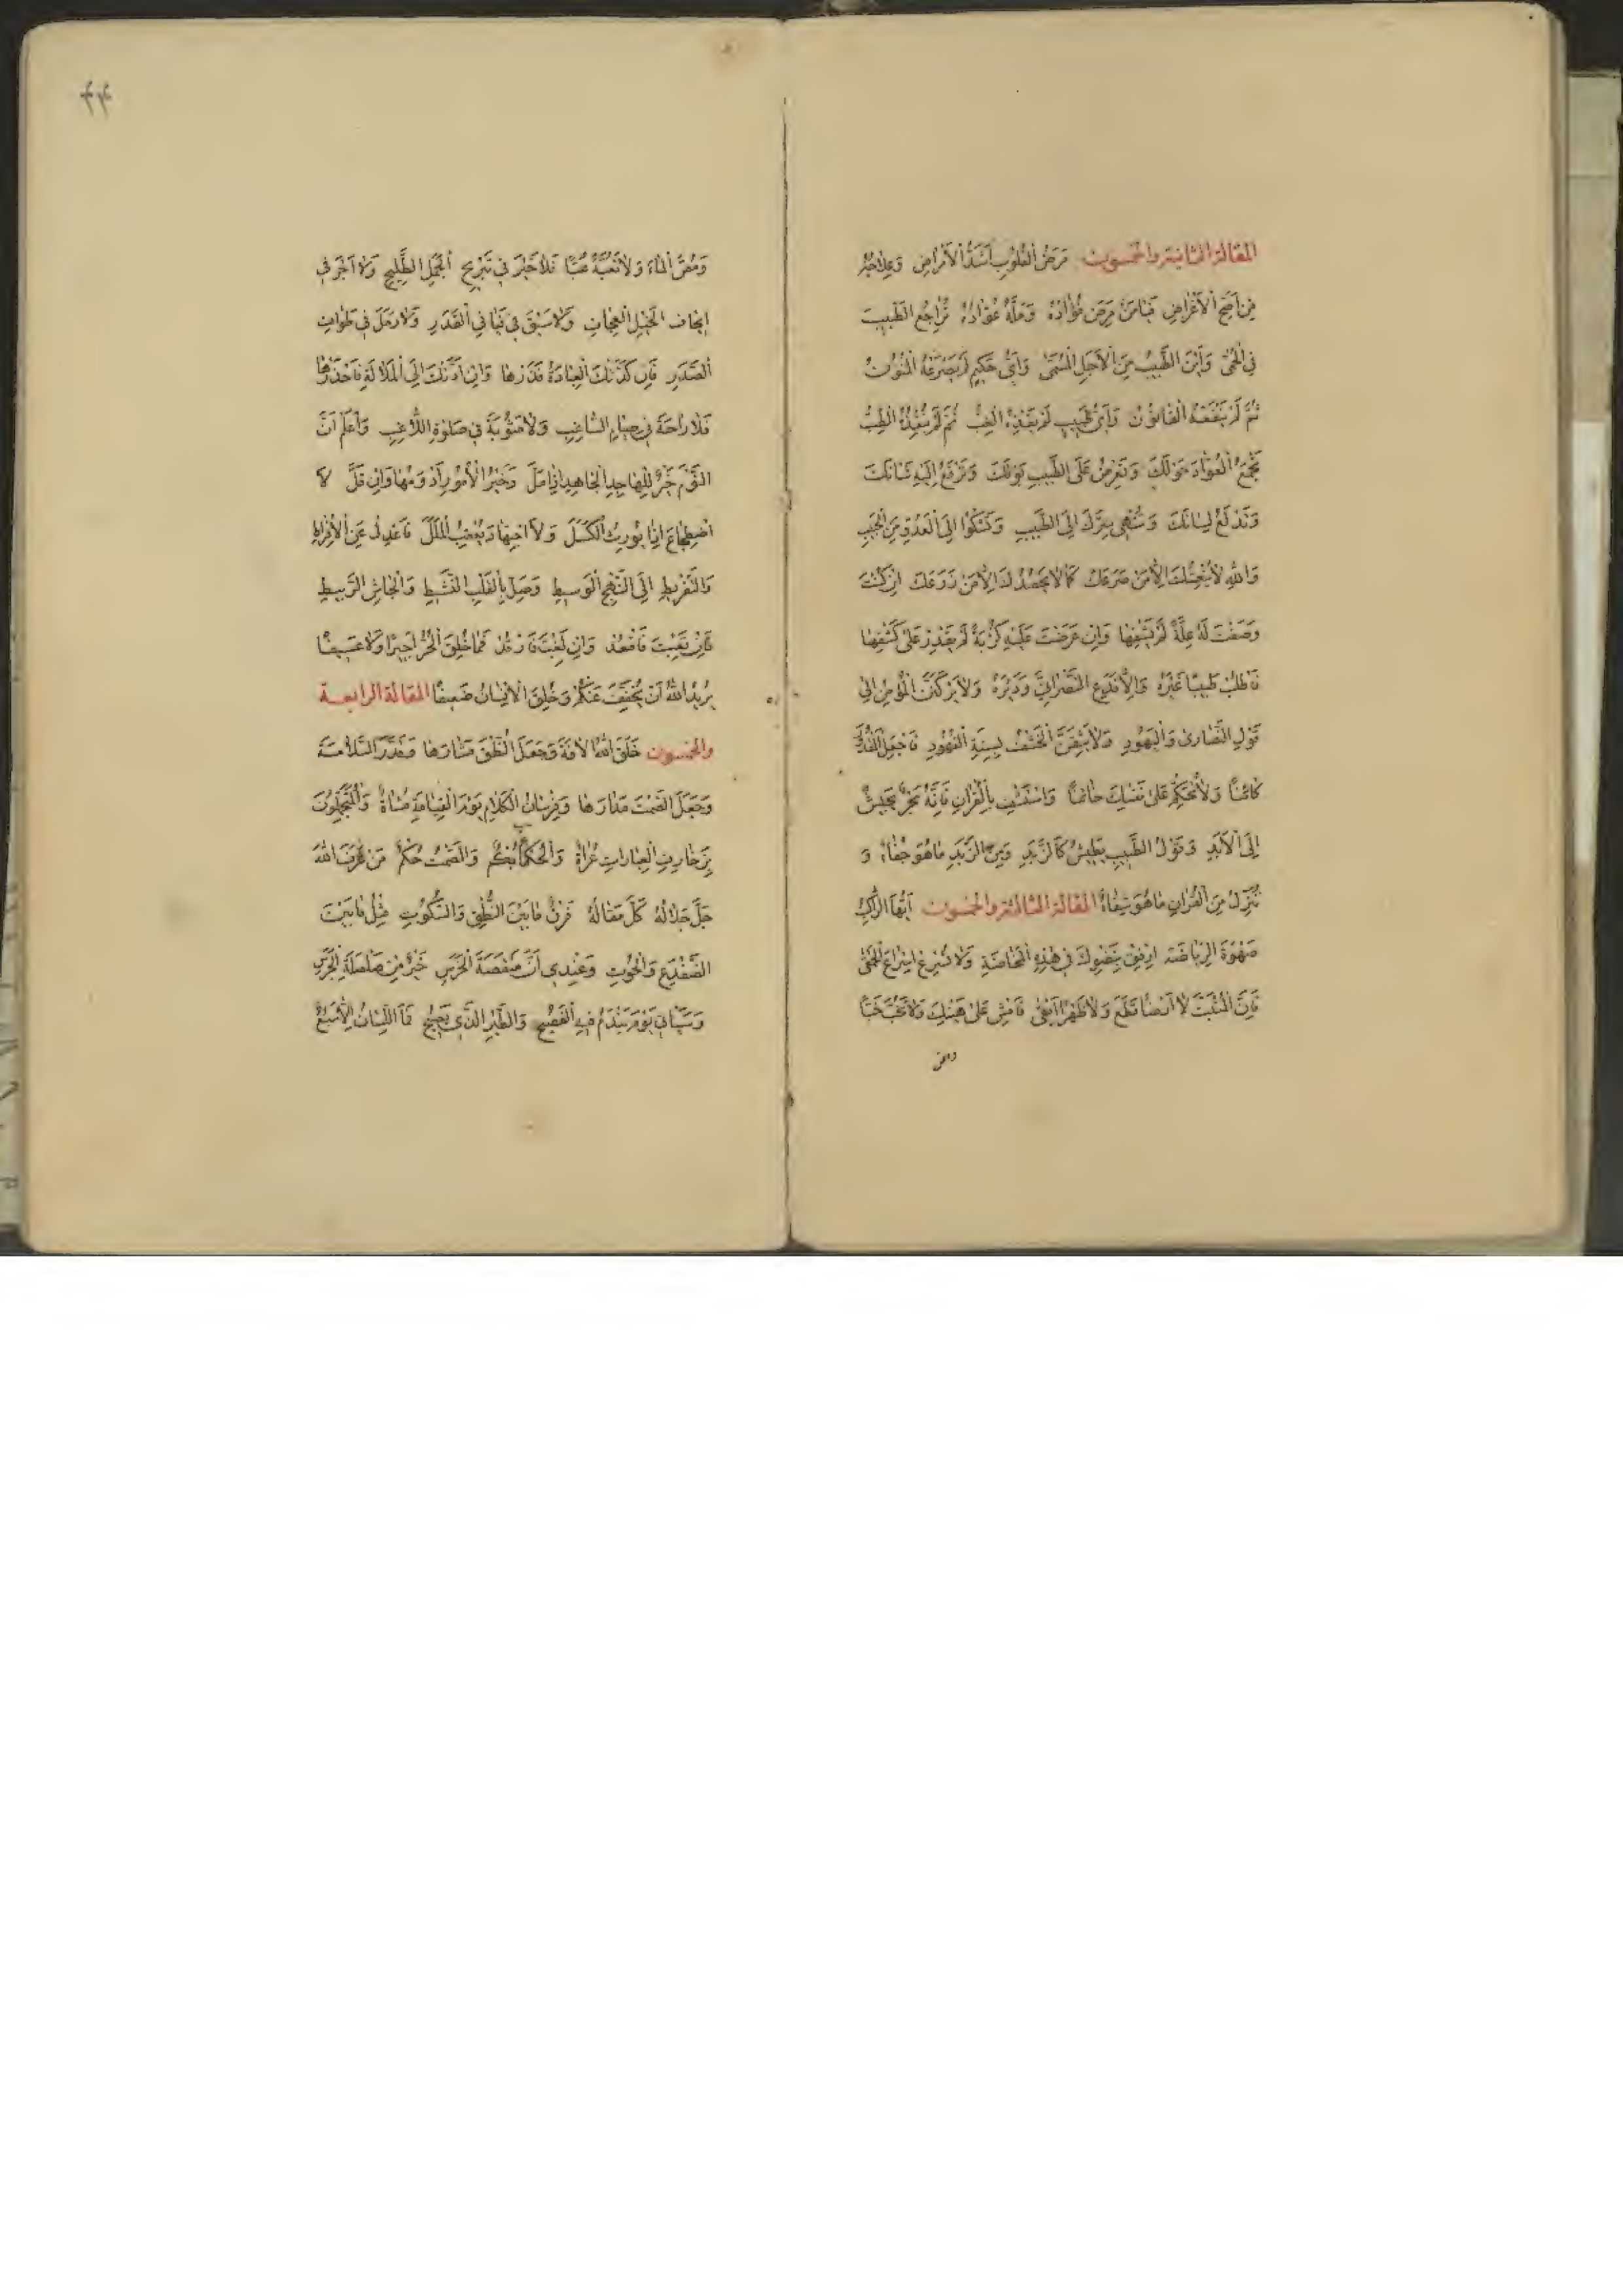 المقالة الثانية والخمسون مَرَضُ القُلُوبِ أَشَدُّ الأَمْرَاضِ وَعِلاجُهُ
مِنْ أَصَحِّ الأَغْرَاضِ فَيَا مَنْ مَرِضَ فُؤَادُهُ وَمَلَّهُ عُوَّادُهُ تُرَاجِعُ الطَّبِيبَ
فِي الحُمَّى وَأَيْنَ الطَّبِيبُ مِنَ الأَجَلِ المُسَمَّى وَأَيُّ حَكِيمٍ لَمْ يَجْرَعْهُ المَنُونُ
ثُمَّ لَمْ يَنْفَعْهُ القَانُونُ وَأَيُّ طَبِيبٍ لَمْ الغِبُّ ثُمَّ لَمْ الطِّبُّ
تَجْمَعُ العُوَّادَ حَوْلَكَ وَتَعْرِضُ عَلَى الطَّبِيبِ بَوْلَكَ وَتَرْفَعُ إِلَيْهِ شَانَكَ
وَتَدْلَعُ لِسَانَكَ إِلَى الطَّبِيبِ وَتَشْكُوا إِلَى العَدُوِّ مِنَ الحَبِيبِ
وَاللهِ لَا إِلَّا مَنْ صَرَعَكَ كَمَا لَا يَحْصُدُكَ إِلَّا مَنْ زَرَعَكَ إِنْ كُنْتَ
وَصَفْتَ لَهُ عِلَّةً لَمْ يَشْفِهَا وَإِنْ عَرَضْتَ عَلَيْهِ كُرْبَةً لَمْ يَقْدِرْ عَلَى كَشْفِهَا
فَاطْلُبْ طَبِيبًا غَيْرَهُ وَإِلَّا فَدَعِ النَّصْرَانِيَّ وَدَيْرَهُ وَلَا يَرْكَنَنَّ المُؤْمِنُ إِلَى
قَوْلِ النَّصَارَى وَاليَهُودِ وَلَا الخَشْفُ لِسِنَةِ الفُهُودِ فَاجْعَلِ
كَائِنًا وَلَا تُحَكِّمْ عَلَى نَفْسِكَ خَائِنًا وَاسْتَشْفِ بِالْقُرْآنِ فَإِنَّهُ بَحْرٌ يَجِيشُ
إِلَى الأَبَدِ وَقَوْلُ الطَّبِيبِ يَطِيشُ كَالزَّبَدِ وَمِنَ الزَّبَدِ مَا هُوَ جُفَاءٌ وَ
نُنَزِّلُ مِنَ القُرْآنِ مَا هُوَ شِفَاءٌ المقالة الثالثة والخمسون أَيُّهَا الرَّاكِبُ
صَهْوَةَ الرِّيَاضَةِ ارْفُقْ بِنِضْوِكَ فِي هَذِهِ المَخَاضَةِ وَلَا تُسْرِعْ إِسْرَاعَ الحَمْقَى
فَإِنَّ المُنْبَتَّ لَا أَرْضًا قَطَعَ وَلَا ظَهْرًا أَبْقَى فَامْشِ عَلَى هَيْنِكَ وَلَا تَخُبَّ خَبًّا
وَمُصَّ المَاءَ وَلَا تَعُبَّهُ عَبًّا فَلَا خَيْرَ فِي تَبْرِيحِ الجَمَلِ الطَّلِيحِ وَلَا أَجْرَ فِي
إِيجَافِ الخَيْلِ العِجَافِ وَلَا سَبْقَ فِي القَدَرِ وَلَا رَمَلَ فِي طَوَافِ
الصَّدَرِ فَإِنْ كَدَّتْكَ العِبَادَةُ فَذَرْهَا وَإِنْ أَدَّتْكَ إِلَى المَلَالَةِ فَاحْذَرْهَا
فَلَا رَاحَةَ فِي صِيَامِ السَّاغِبِ وَلَا مَثُوبَةَ فِي صَلَوةِ اللَّاغِبِ وَاعْلَمْ أَنَّ
النَّوْمَ خَيْرٌ لِلْهَاجِدِ الجَاهِدِ إِذَا مَلَّ وَخَيْرُ الأُمُورِ أَدْوَمُهَا وَإِنْ قَلَّ لَا
اضْطِجَاعَ إِنَّمَا يُورِثُ الكَسَلَ وَلَا اجْتِهَادَ المَلَلَ فَاعْدِلْ عَنِ الإِفْرَاطِ
وَالتَّفْرِيطِ إِلَى النَّهْجِ الوَسِيطِ وَصَلِّ بِالْقَلْبِ النَّشِيطِ وَالجَاشِ الرَّبِيطِ
فَإِنْ تَعِبْتَ فَاقْعُدْ وَإِنْ لَغِبْتَ فَارْقُدْ فَمَا خُلِقَ الحُرُّ أَجِيرًا وَلَا عَسِيفًا
يُرِيدُ اللهُ أَنْ يُخَفِّفَ عَنْكُمْ وَخُلِقَ الإِنْسَانُ ضَعِيفًا المقالة الرابعة
والخمسون خَلَقَ اللهُ الآفَةَ وَجَعَلَ النُّطْقَ مَثَارَهَا وَقَدَّرَ السَّلَامَةَ
وَجَعَلَ الصَّمْتَ مَدَارَهَا وَفُرْسَانُ الكَلَامِ يَوْمَ القِيَامَةِ مُشَاةٌ وَالمُتَجَمِّلُونَ
بِزَخَارِفِ العِبَارَاتِ عُرَاةٌ وَالحُكَمَاءُ بُكْمٌ وَالصَّمْتُ حُكْمٌ مَنْ عَرَفَ اللهَ
جَلَّ جَلَالُهُ كَلَّ مَقَالُهُ فَرْقُ مَا بَيْنَ النُّطْقِ وَالسُّكُوتِ مِثْلُ مَا بَيْنَ
الضِّفْدَعِ وَالحُوتِ وَعِنْدِي أَنَّ مَنْقَصَةَ الخَرَسِ خَيْرٌ مِنْ صَلْصَلَةِ الجَرَسِ
وَسَيَأْتِي يَوْمَ يَنْدَمُ فِيهِ الفَصِيحُ وَالطَّيْرُ الَّذِي يَصِيحُ فَمَا اللِّسَانُ إِلَّا سَبُعٌ